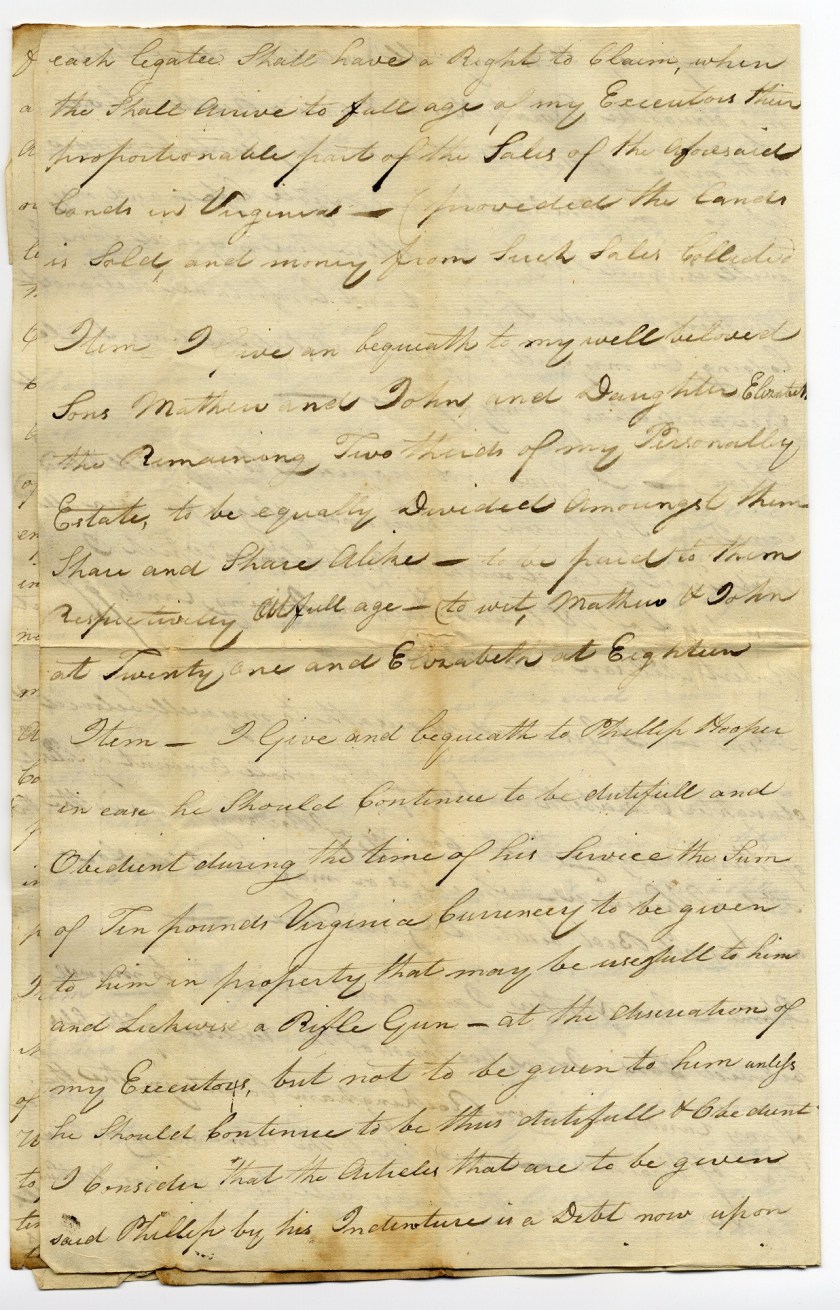 each legatee Shall have a Right to Claim, when
the Shall Arive to full age, of my Executors their
proportionable part of the Sales of the Aforesaid
Lands in Virginia — (proveded the Lands
is Sold, and money from Such Sales Collected)
Item I Give an bequeath to my well beloved
Sons Mathew and John and Daughter Elizabeth
the Remaining Two thirds of my Personally
Estate, to be equally Devided Amoungst them
Share and Share Alike — to be paid to them
Respectively At full age — (to wit, Mathew & John
at Twenty one and Elizabeth at Eighteen
Item — I Give and bequeath to Phillip Hooper
in case he Should Continue to be dutifull and
Obedient during the time of his Service the Sum
of Ten pounds Virginia Currencey to be given
to him in property that may be usefull to him
and Lickwise a Rifle Gun — at the discreation of
my Executors, but not to be given to him unless
he Should Continue to be thus dutifull & Obedient
I Consider that the Articles that are to be given
said Phillip by his Indenture is a Debt now upon